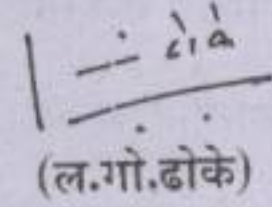 (ल.गो.ढोके)